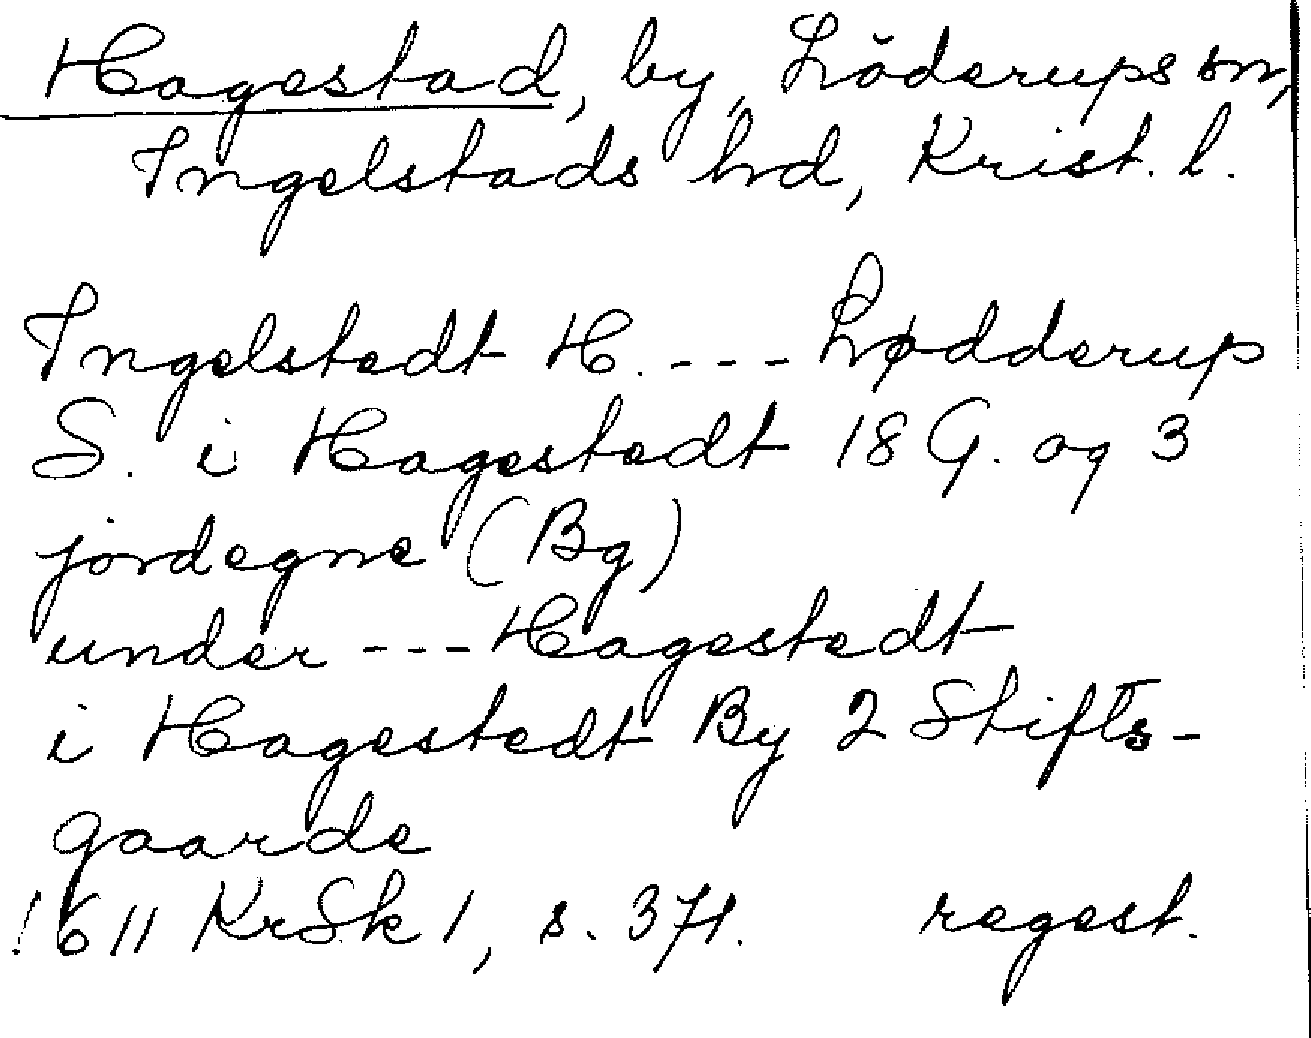 Hagestad, by, Löderups sn,
Ingelstads hd, Krist. l.
Ingelstedt H. --- Lødderup
S. i Hagestedt 18 G. og 3
jordegne (Bg)
under --- Hagestedt
i Hagestedt By 2 Stifts-
gaarde
1611 KrSk 1, s. 371. regest.